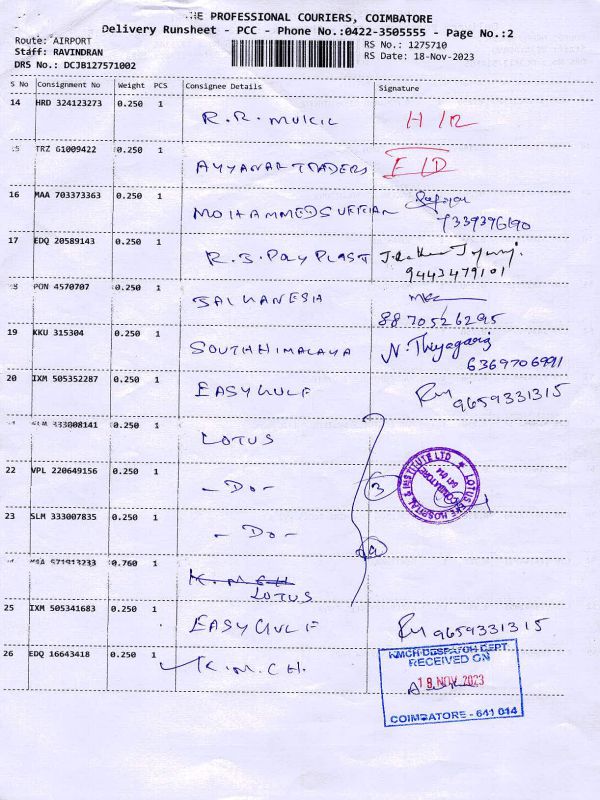 THE PROFESSIONAL COURIERS, COIMBATORE
Delivery Runsheet - PCC - Phone No.:0422-3505555 - Page No.:2
Route: AIRPORT
Staff: RAVINDRAN
DRS No.: DCJB127571002
RS No.: 1275710
RS Date: 18-Nov-2023
S No Consignment No Weight PCS Consignee Details Signature
14 HRD 324123273 0.250 1 R.R. MUKIL H/R
15 TRZ G1009422 0.250 1 AYYANAR TRADERS
16 MAA 703373363 0.250 1 MOHAMMED SUFFIAN
7339396190
17 EDQ 20589143 0.250 1 R.S. POLY PLAST
9443479101
18 PON 4570707 0.250 1
8870526295
19 KKU 315304 0.250 1 SOUTH HIMALAYA N. Thiyagaraj
6369706991
20 IXM 505352287 0.250 1 EASY GULF 9659331315
SLM 333008141 0.250 1 LOTUS
22 VPL 220649156 0.250 1 - Do - 3
23 SLM 333007835 0.250 1 - Do -
MAA 571913233 0.760 1 K.M.C.H
LOTUS
LOTUS EYE HOSPITAL & INSTITUTE LTD
COIMBATORE
641 014
25 IXM 505341683 0.250 1 EASY GULF 9659331315
26 EDQ 16643418 0.250 1 K.M.C.H.
KMCH DESPATCH DEPT.
RECEIVED ON
18 NOV 2023
COIMBATORE - 641 014